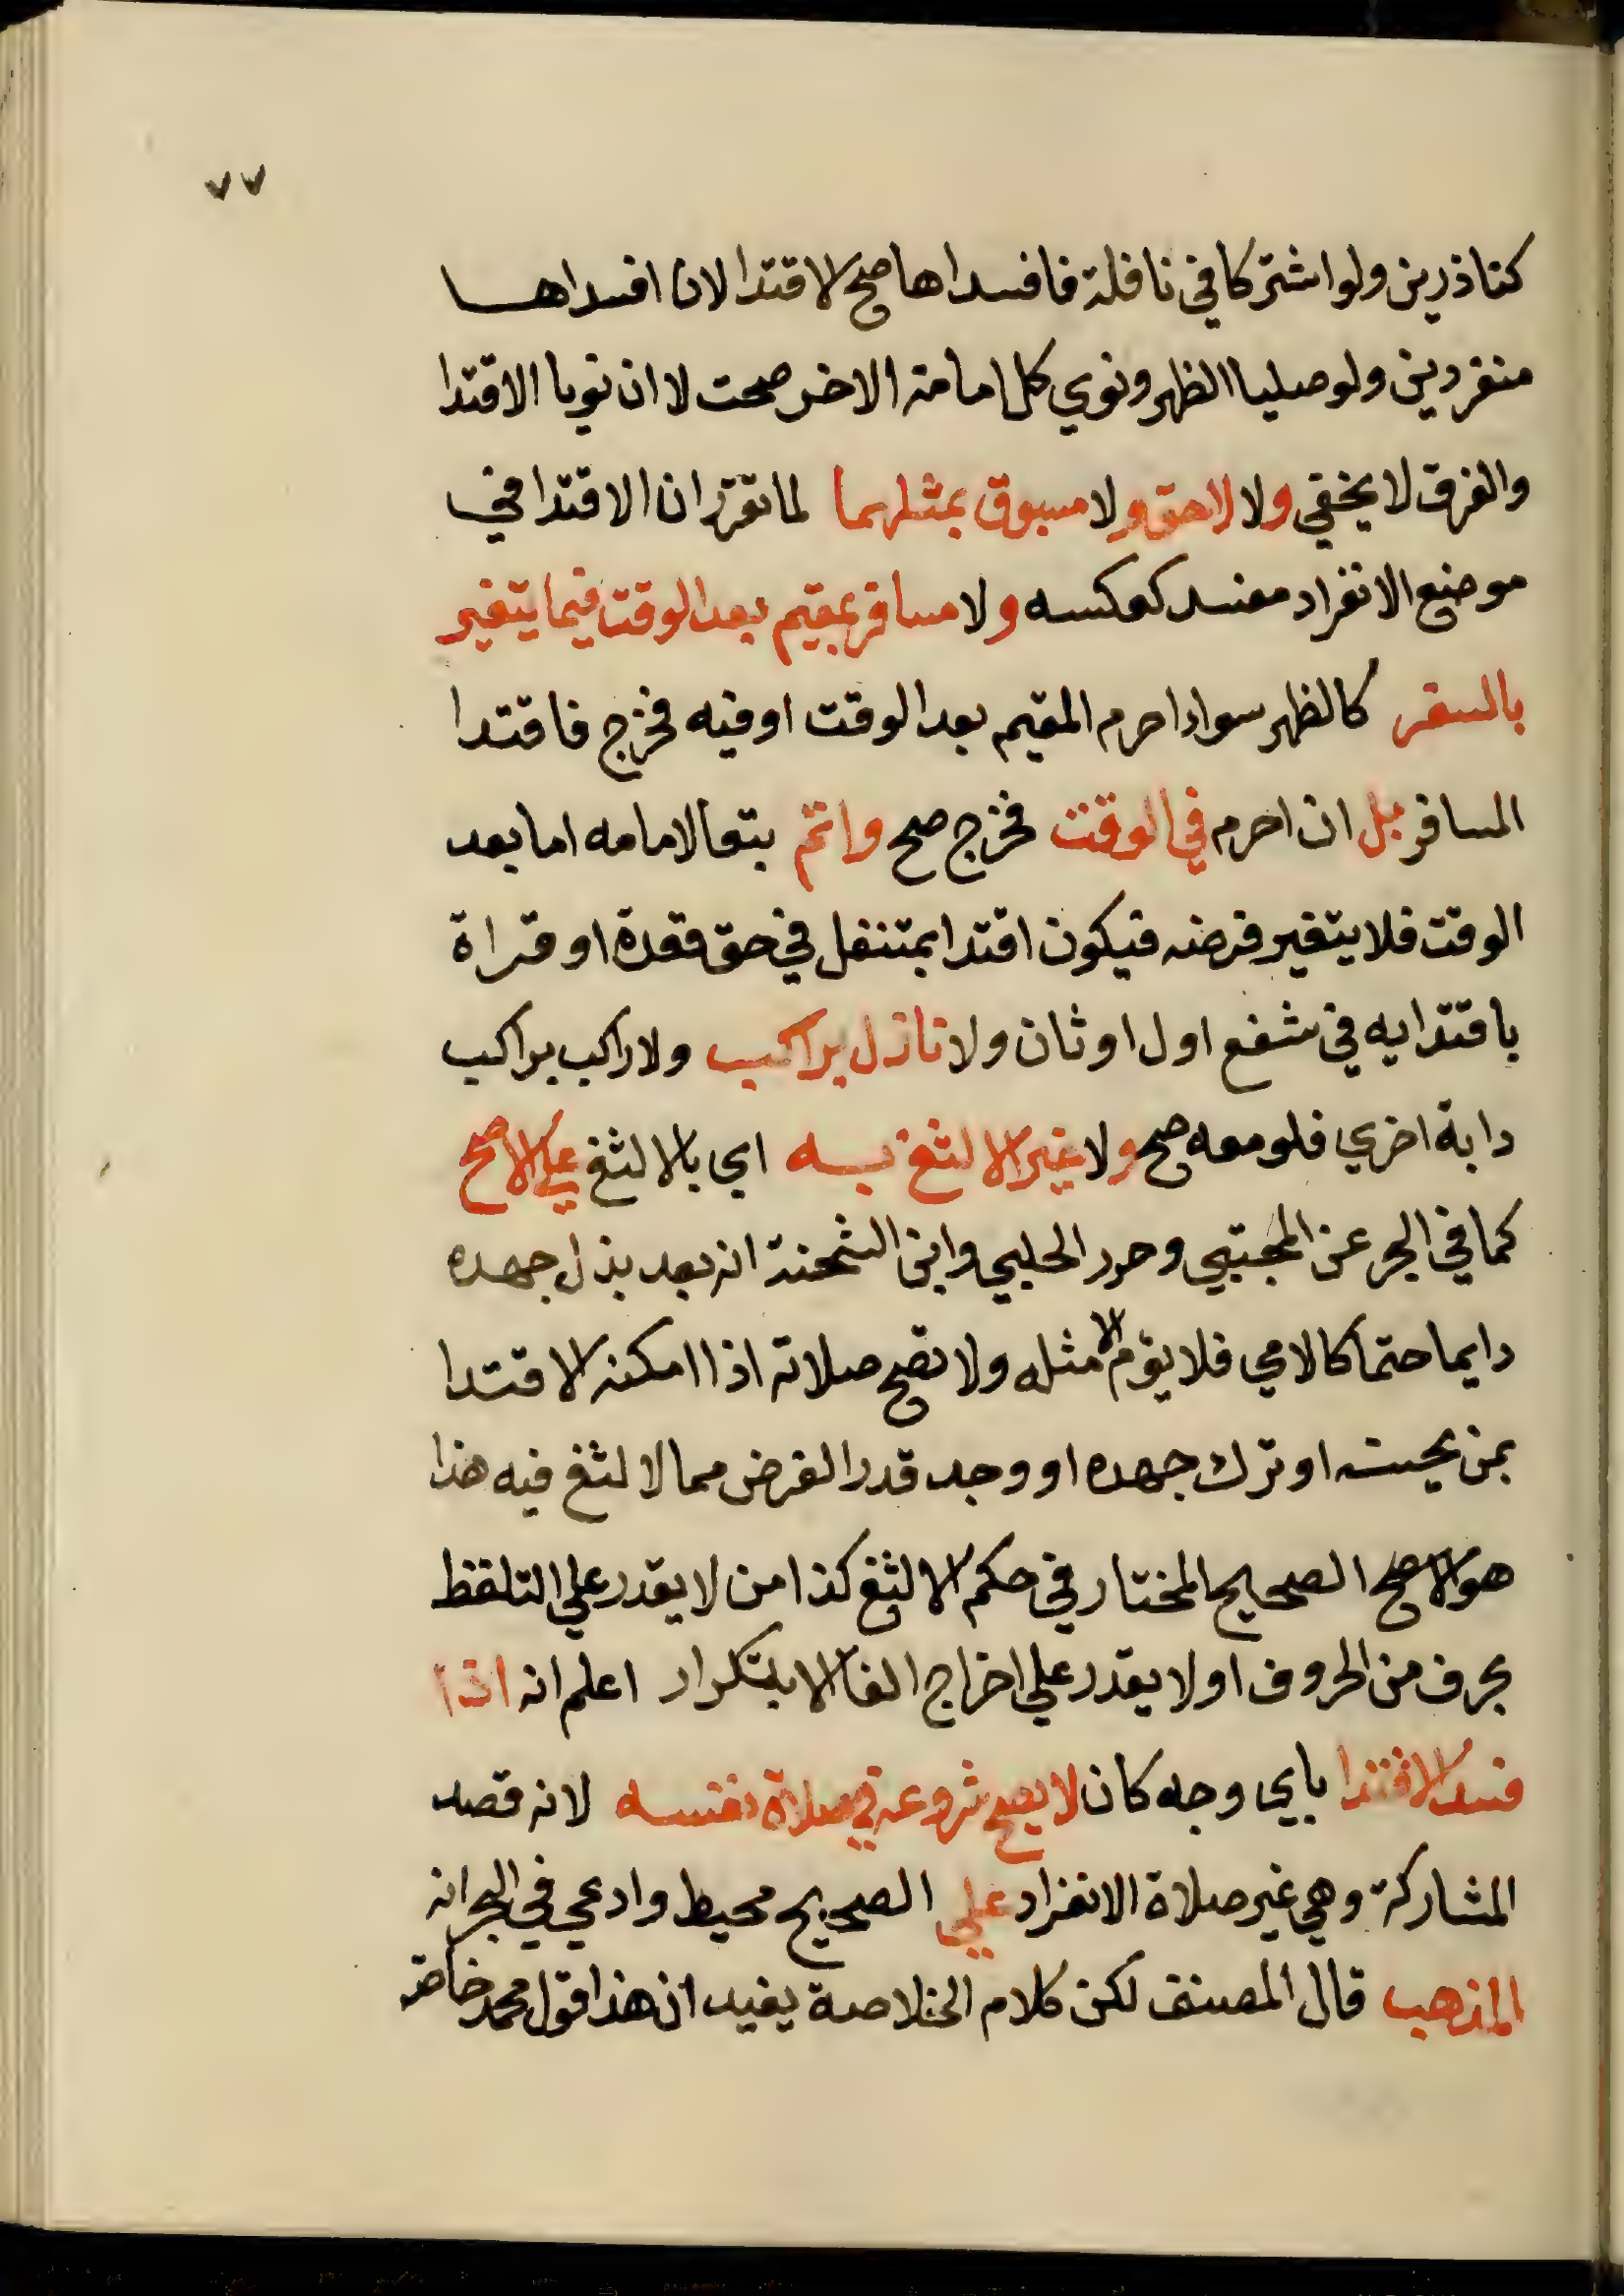 ٧٧
كناذرين ولو اشتركا في نافلة فافسداها صح الاقتدا لا ان افسداها
منفردين ولو صليا الظهر ونوي كل امامة الاخر صحت لا ان نويا الاقتدا
والفرق لا يخفي ولا لاحق ولا مسبوق بمثلهما لما تقرر ان الاقتدا في
موضع الانفراد مفسد كعكسه ولا مسافر بمقيم بعد الوقت فيما يتغير
بالسفر كالظهر سواء احرم المقيم بعد الوقت او فيه فخرج فاقتدا
المسافر بل ان احرم في الوقت فخرج صح واتم تبعا لامامه اما بعد
الوقت فلا يتغير فرضه فيكون اقتدا بمتنفل في حق قعدة او قراة
باقتدايه في شفع اول او ثان ولا نازل براكب ولا راكب براكب
دابة اخري فلو معه صح ولا غير الالثغ به اي بالالثغ علي الاصح
كما في البحر عن المجتبي وحرر الحلبي وابن الشحنة انه بعد بذل جهده
دايما حتما كالامي فلا يؤم الا مثله ولا تصح صلاته اذا امكنه الاقتدا
بمن يحسنه او ترك جهده او وجد قدر الفرض مما لا لثغ فيه هذا
هو الاصح الصحيح المختار في حكم الالثغ كذا من لا يقدر علي التلفظ
بحرف من الحروف او لا يقدر علي اخراج الفا الا بتكرار اعلم انه اذا
فسد الاقتدا باي وجه كان لا يصح شروعه في صلاة نفسه لانه قصد
المشاركة وهي غير صلاة الانفراد علي الصحيح محيط وادعي في البحر انه
المذهب قال المصنف لكن كلام الخلاصة يفيد ان هذا قول محمد خاصة